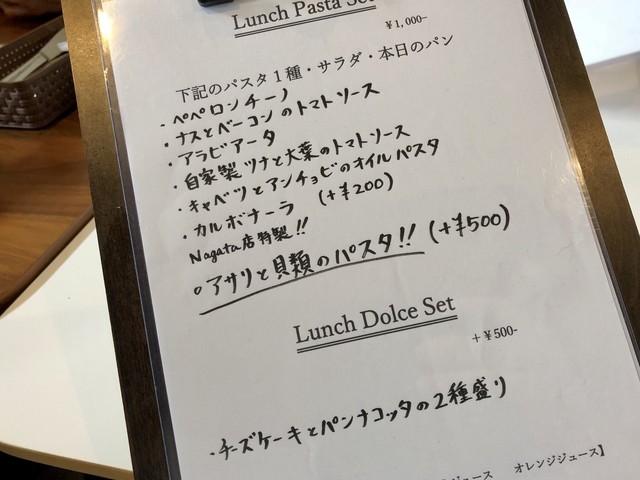 Lunch Pasta Set
¥1,000-
下記のパスタ1種・サラダ・本日のパン
・ペペロンチーノ
・ナスとベーコンのトマトソース
・アラビアータ
・自家製ツナと大葉のトマトソース
・キャベツとアンチョビのオイルパスタ
・カルボナーラ (+¥200)
Nagata店特製!!
○アサリと貝類のパスタ!! (+¥500)
Lunch Dolce Set
+¥500-
・チーズケーキとパンナコッタの2種盛り
ジュース オレンジジュース】